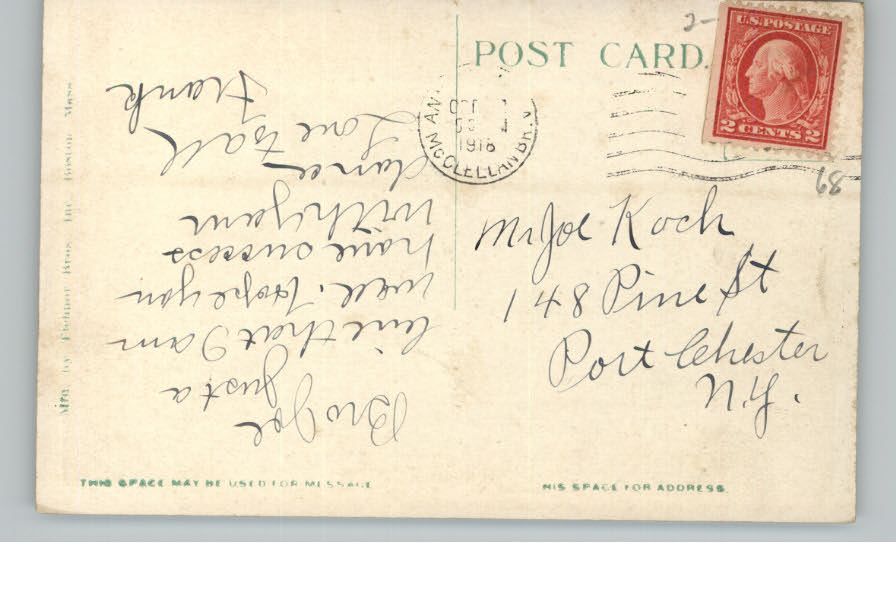 POST CARD.
U.S. POSTAGE
2 CENTS 2
2-
OCT
1918
McCLELLAN BR.
68
Mr Joe Koch
148 Pine St
Port Chester
N.Y.
Bro Joe
Just a
line that I am
well. Hope you
have success
with your
Love to all
Frank
Mfg by Bros Inc Boston Mass
THIS SPACE MAY BE USED FOR MESSAGE
HIS SPACE FOR ADDRESS.